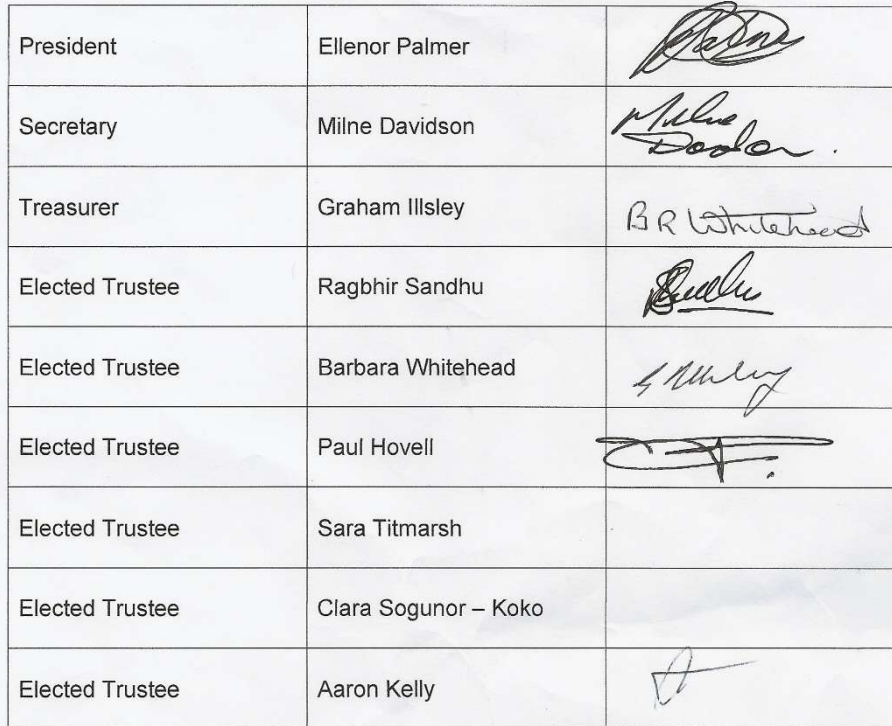 President Ellenor Palmer
Secretary Milne Davidson Milne
Treasurer Graham Illsley B R Whitehead
Elected Trustee Ragbhir Sandhu
Elected Trustee Barbara Whitehead
Elected Trustee Paul Hovell
Elected Trustee Sara Titmarsh
Elected Trustee Clara Sogunor – Koko
Elected Trustee Aaron Kelly